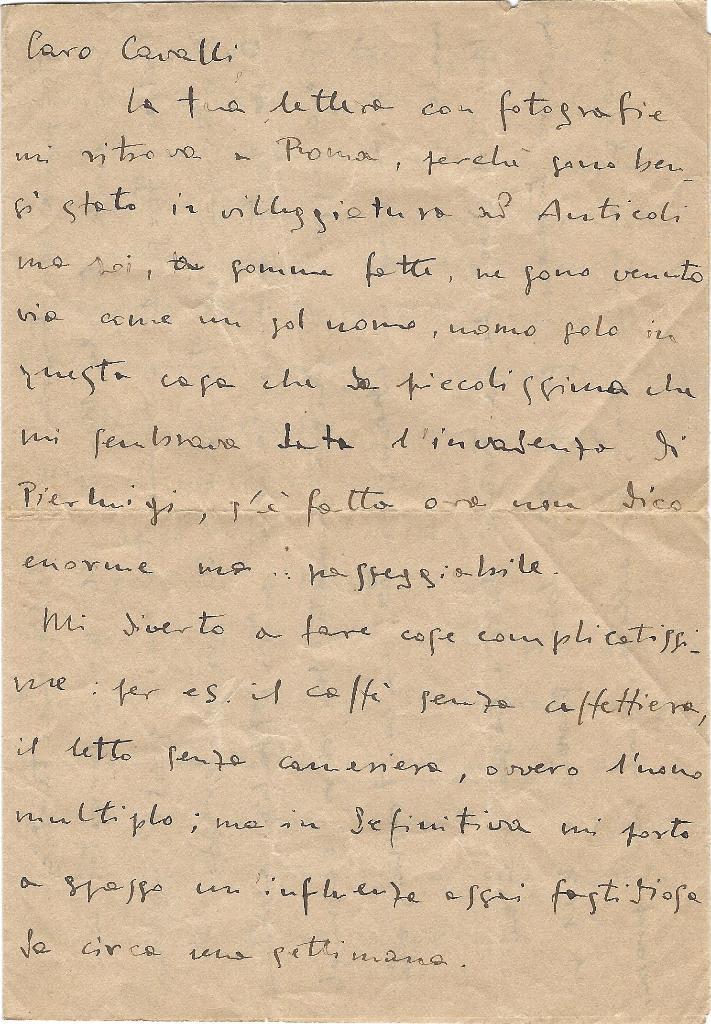 Caro Cavalli
La tua lettera con fotografie
mi ritrova a Roma, perchè sono ben-
sì stato in villeggiatura ad Anticoli
ma poi, somme fatte, ne sono venuto
via come un sol uomo, uomo solo in
questa casa che da piccolissima che
mi sembrava data l'invadenza di
Pierluigi, s'è fatta ora non dico
enorme ma .. passeggiabile.
Mi diverto a fare cose complicatissi-
me: per es. il caffè senza caffettiera,
il letto senza cameriera, ovvero l'uomo
multiplo; ma in definitiva mi porto
a spasso un'influenza assai fastidiosa
da circa una settimana.